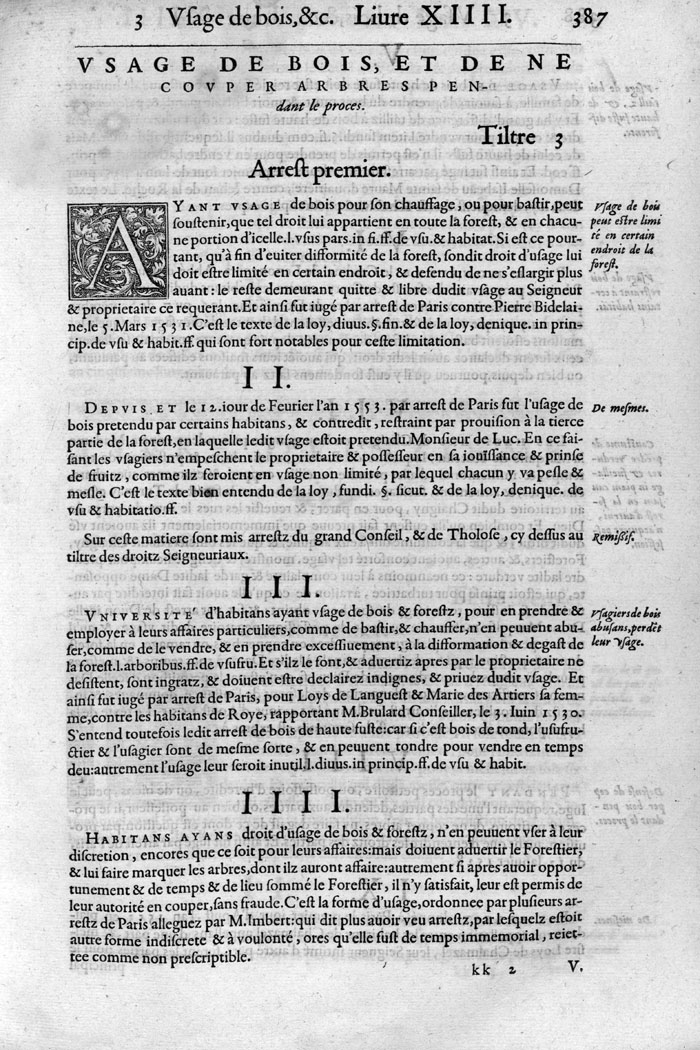 3 Vſage de bois, &c. Liure XIIII. 387
VSAGE DE BOIS, ET DE NE
COVPER ARBRES PEN-
dant le proces.
Tiltre 3
Arreſt premier.
AYANT VSAGE de bois pour ſon chauffage, ou pour baſtir, peut
ſouſtenir, que tel droit lui appartient en toute la foreſt, & en chacu-
ne portion d'icelle. l. vſus pars. in fi. ff. de vſu. & habitat. Si eſt ce pour-
tant, qu'à fin d'euiter difformité de la foreſt, ſondit droit d'uſage lui
doit eſtre limité en certain endroit, & defendu de ne s'eſlargir plus
auant: le reſte demeurant quitte & libre dudit vſage au Seigneur
& proprietaire ce requerant. Et ainſi fut iugé par arreſt de Paris contre Pierre Bidelai-
ne, le 5. Mars 1531. C'eſt le texte de la loy, diuus. §. fin. & de la loy, denique. in prin-
cip. de vſu & habit. ff. qui ſont fort notables pour ceſte limitation.
Vſage de bois
peut eſtre limi
té en certain
endroit de la
foreſt.
II.
DEPVIS, ET le 12. iour de Feurier l'an 1553. par arreſt de Paris fut l'uſage de
bois pretendu par certains habitans, & contredit, reſtraint par prouiſion à la tierce
partie de la foreſt, en laquelle ledit vſage eſtoit pretendu. Monſieur de Luc. En ce fai-
ſant les vſagiers n'empeſchent le proprietaire & poſſeſſeur en ſa iouïſſance & prinſe
de fruitz, comme ilz feroient en vſage non limité, par lequel chacun y va peſle &
meſle. C'eſt le texte bien entendu de la loy, fundi. §. ſicut. & de la loy, denique. de
vſu & habitatio. ff.
De meſmes.
Sur ceſte matiere ſont mis arreſtz du grand Conſeil, & de Tholoſe, cy deſſus au
tiltre des droitz Seigneuriaux.
Remiſſiſ.
III.
VNIVERSITE' d'habitans ayant vſage de bois & foreſtz, pour en prendre &
employer à leurs affaires particuliers, comme de baſtir, & chauffer, n'en peuuent abu-
ſer, comme de le vendre, & en prendre exceſſiuement, à la difformation & degaſt de
la foreſt. l. arboribus. ff. de vſufru. Et s'ilz le font, & aduertiz apres par le proprietaire ne
deſiſtent, ſont ingratz, & doiuent eſtre declairez indignes, & priuez dudit vſage. Et
ainſi fut iugé par arreſt de Paris, pour Loys de Langueſt & Marie des Artiers ſa fem-
me, contre les habitans de Roye, rapportant M. Brulard Conſeiller, le 3. Iuin 1530.
S'entend toutefois ledit arreſt de bois de haute fuſte: car ſi c'eſt bois de tond, l'uſufru-
ctier & l'uſagier ſont de meſme ſorte, & en peuuent tondre pour vendre en temps
deu: autrement l'uſage leur ſeroit inutil. l. diuus. in princip. ff. de vſu & habit.
Vſagiers de bois
abuſans, perdēt
leur vſage.
IIII.
HABITANS AYANS droit d'uſage de bois & foreſtz, n'en peuuent vſer à leur
diſcretion, encores que ce ſoit pour leurs affaires: mais doiuent aduertir le Foreſtier,
& lui faire marquer les arbres, dont ilz auront affaire: autrement ſi apres auoir oppor-
tunement & de temps & de lieu ſommé le Foreſtier, il n'y ſatisfait, leur eſt permis de
leur autorité en couper, ſans fraude. C'eſt la forme d'uſage, ordonnee par pluſieurs ar-
reſtz de Paris alleguez par M. Imbert: qui dit plus auoir veu arreſtz, par leſquelz eſtoit
autre forme indiſcrete & à voulonté, ores qu'elle fuſt de temps immemorial, reiet-
tee comme non preſcriptible.
kk 2 V.